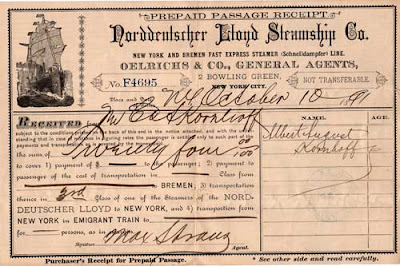 PREPAID PASSAGE RECEIPT.
Norddeutscher Lloyd Steamship Co.
NEW YORK AND BREMEN FAST EXPRESS STEAMER (Schnelldampfer) LINE.
OELRICHS & CO., GENERAL AGENTS,
No. F4695
2 BOWLING GREEN,
NEW YORK CITY.
NOT TRANSFERABLE.
Place and Date N.Y. October 10 1891
RECEIVED from Mr Ed Kornhoff
subject to the conditions
part of this and in the notice attached, and with the
in signing same the passenger is entitled only to such part of
payments and transportation
the sum of Twenty four 00/00
to cover 1) payment of $ to the passenger; 2) payment to
passenger of the cost of transportation in Class from
to BREMEN; 3) transportation
thence in 3rd Class of one of the Steamers of the NORD-
DEUTSCHER LLOYD to NEW YORK, and 4) transportation from
NEW YORK in EMIGRANT TRAIN to
for persons, as in
Signature Max Strauz Agent.
NAME. AGE.
Albert August
Kornhoff
Purchaser's Receipt for Prepaid Passage.
See other side and read carefully.